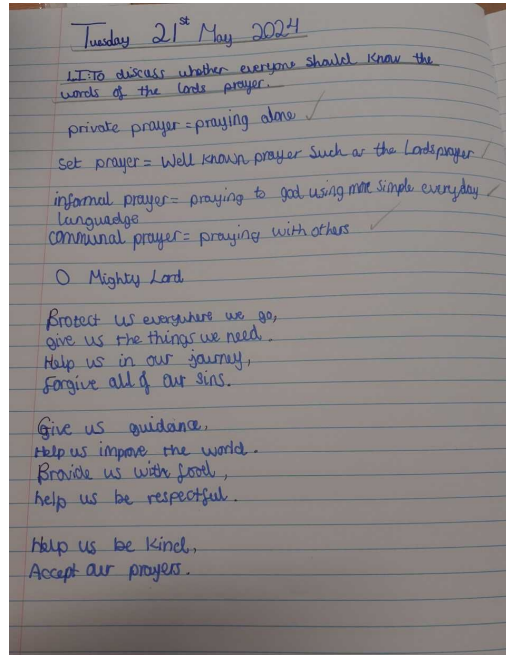 Tuesday 21st May 2024
LI: To discuss whether everyone should know the
words of the lords prayer.
private prayer = praying alone
set prayer = Well known prayer such as the Lords prayer
informal prayer = praying to god using more simple everyday
languadge
communal prayer = praying with others
O Mighty Lord
Protect us everywhere we go,
give us the things we need.
Help us in our journey,
Forgive all of our sins.
Give us guidance,
Help us improve the world.
Provide us with food,
help us be respectful.
Help us be kind,
Accept our prayers.